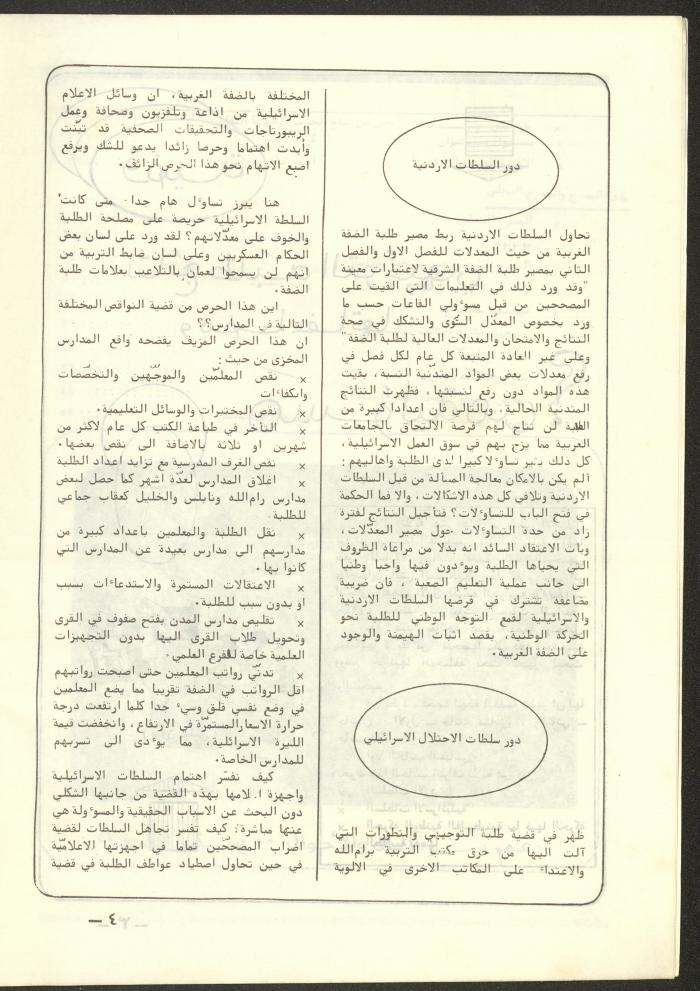 دور السلطات الاردنية
تحاول السلطات الاردنية ربط مصير طلبة الضفة
الغربية من حيث المعدلات للفصل الاول والفصل
الثاني بمصير طلبة الضفة الشرقية لاعتبارات معينة
"وقد ورد ذلك في التعليمات التي القيت على
المصححين من قبل مسوءولي القاعات حسب ما
ورد بخصوص المعدّل السّنوى والتشكك في صحة
النتائج والامتحان والمعدلات العالية لطلبة الضفة"
وعلى غير العادة المتبعة كل عام لكل فصل في
رفع معدلات بعض المواد المتدنّية النسبة، بقيت
هذه المواد دون رفع لنسبتها، فظهرت النتائج
المتدنية الحالية، وبالتالي فان اعدادا كبيرة من
لن تتاح لهم فرصة الالتحاق بالجامعات
العربية مما يزج بهم في سوق العمل الاسرائيلية،
كل ذلك يثير تساوءلا كبيرا لدى الطلبة واهاليهم :
ألم يكن بالامكان معالجة المسألة من قبل السلطات
الاردنية وتلافي كل هذه الاشكالات، والا فما الحكمة
في فتح الباب للتساوءلات؟ فتأجيل النتائج لفترة
زاد من حدة التساوءلات حول مصير المعدّلات،
وبات الاعتقاد السائد انه بدلا من مراعاة الظروف
التي يحياها الطلبة ويوءدون فيها واجبا وطنيا
الى جانب عملية التعليم الصعبة، فان ضريبة
مضاعفة تشترك في فرضها السلطات الاردنية
والاسرائيلية لقمع التوجه الوطني للطلبة نحو
الحركة الوطنية، بقصد اثبات الهيمنة والوجود
على الضفة الغربية.
دور سلطات الاحتلال الاسرائيلي
ظهر في قضية طلبة التوجيهي والتطورات التي
آلت اليها من حرق مكتب التربية برام الله
والاعتداء على المكاتب الاخرى في الالوية
المختلفة بالضفة الغربية، ان وسائل الاعلام
الاسرائيلية من اذاعة وتلفزيون وصحافة وعمل
الريبورتاجات والتحقيقات الصحفية قد تبنّت
وأبدت اهتماما وحرصا زائدا يدعو للشك ويرفع
اصبع الاتهام نحو هذا الحرص الزائف.
هنا يبرز تساوءل هام جدا متى كانت
السلطة الاسرائيلية حريصة على مصلحة الطلبة
والخوف على معدّلاتهم؟ لقد ورد على لسان بعض
الحكام العسكريين وعلى لسان ضابط التربية من
انهم لن يسمحوا لعمان بالتلاعب بعلامات طلبة
الضفة.
اين هذا الحرص من قضية النواقص المختلفة
التالية في المدارس؟؟
ان هذا الحرص المزيف يفضحه واقع المدارس
المخزي من حيث :
× نقص المعلّمين والموجّهين والتخصّصات
والكفاءات
× نقص المختبرات والوسائل التعليمية.
× التأخر في طباعة الكتب كل عام لاكثر من
شهرين او ثلاثة بالاضافة الى نقص بعضها.
× نقص الغرف المدرسية مع تزايد اعداد الطلبة
× اغلاق المدارس لعدّة اشهر كما حصل لبعض
مدارس رام الله ونابلس والخليل كعقاب جماعي
للطلبة
× نقل الطلبة والمعلمين باعداد كبيرة من
مدارسهم الى مدارس بعيدة عن المدارس التي
كانوا بها.
× الاعتقالات المستمرة والاستدعاءات بسبب
او بدون سبب للطلبة.
× تقليص مدارس المدن بفتح صفوف في القرى
وتحويل طلاب القرى اليها بدون التجهيزات
العلمية خاصة للفرع العلمي.
× تدنّي رواتب المعلمين حتى اصبحت رواتبهم
اقل الرواتب في الضفة تقريبا مما يضع المعلمين
في وضع نفسي قلق وسيء جدا كلما ارتفعت درجة
حرارة الاسعار المستمرّة في الارتفاع، وانخفضت قيمة
الليرة الاسرائلية، مما يوءدى الى تسربهم
للمدارس الخاصة.
كيف نفسّر اهتمام السلطات الاسرائيلية
واجهزة اعلامها بهذه القضية من جانبها الشكلي
دون البحث عن الاسباب الحقيقية والمسوءولة هي
عنها مباشرة: كيف تفسر تجاهل السلطات لقضية
اضراب المصحّحين تماما في اجهزتها الاعلاميّة
في حين تحاول اصطياد عواطف الطلبة في قضية
٤ –